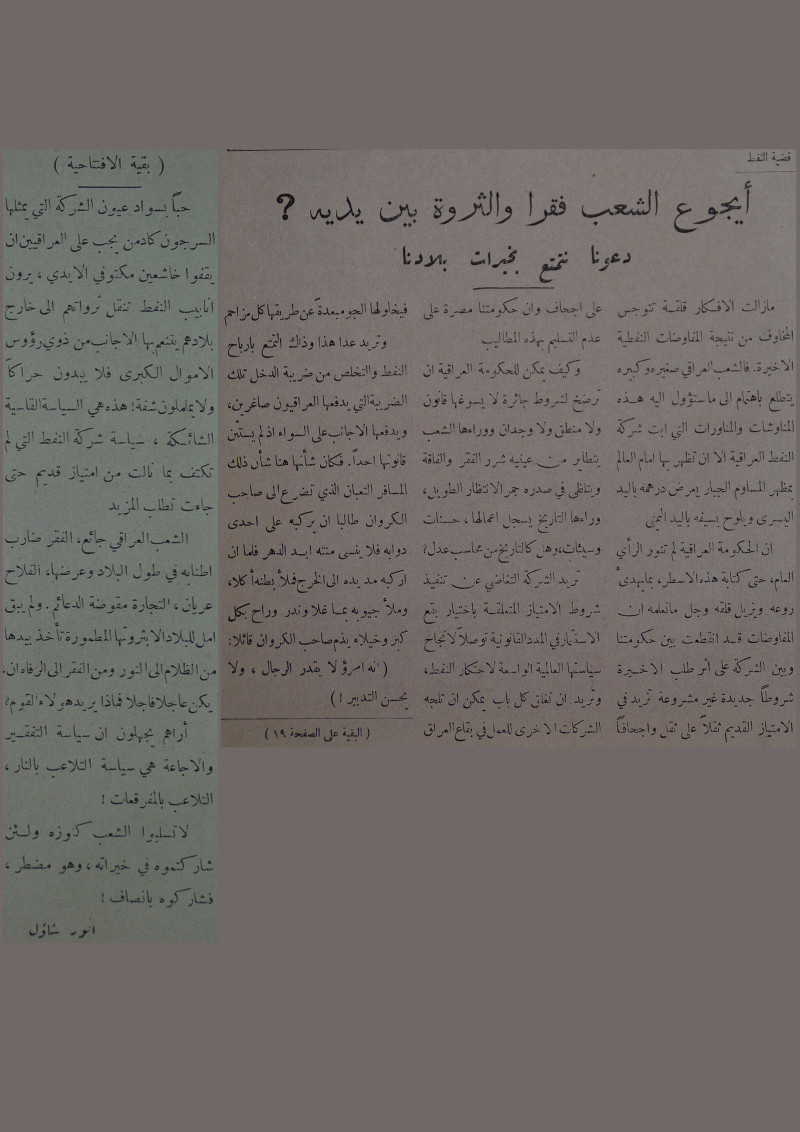 قضية النفط
أيجوع الشعب فقرا والثروة بين يديه ?
دعونا نتمتع بخيرات بلادنا
مازالت الافكار قلقة تتوجس
المخاوف من نتيجة المفاوضات النفطية
الاخيرة. فالشعب العراقي صغيره وكبيره
يتطلع باهتمام الى ماستؤول اليه هذه
المناوشات والمناورات التي ابت شركة
النفط العراقية الا ان تظهر بها امام العالم
بمظهر المساوم الجبار يعرض درهمه باليد
اليسرى ويلوح بسيفه باليد اليمنى
ان الحكومة العراقية لم تنور الرأي
العام، حتى كتابة هذه الاسطر، بمايهدىء
روعه ويزيل قلقه وجل مانعلمه ان
المفاوضات قد انقطعت بين حكومتنا
وبين الشركة على اثر طلب الاخيرة
شروطاً جديدة غير مشروعة تزيد في
الامتياز القديم ثقلاً على ثقل واجحافاً
على اجحاف وان حكومتنا مصرة على
عدم التسليم بهذه المطاليب
وكيف يمكن للحكومة العراقية ان
ترضخ لشروط جائرة لا يسوغها قانون
ولا منطق ولا وجدان ووراءها الشعب
يتطاير من عينيه شرر الفقر والفاقة
ويتلظى في صدره جمر الانتظار الطويل،
وراءها التاريخ يسجل اعمالها، حسنات
وسيئات، وهل كالتاريخ من محاسب عدل?
تريد الشركة التغاضي عن تنفيذ
شروط الامتياز المتعلقة باختيار بقع
الاستثمار في المدد القانونية توصلاً لانجاح
سياستها العالمية الواسعة لاحتكار النفط،
وتريد ان تغلق كل باب يمكن ان تلجه
الشركات الاخرى للعمل في بقاع العراق
فيخلولها الجو مبعدةً عن طريقها كل مزاحم
وتريد عدا هذا وذاك التمتع بارباح
النفط والتخلص من ضريبة الدخل تلك
الضريبة التي يدفعها العراقيون صاغرين،
ويدفعها الاجانب على السواء اذ لم يستثن
قانونها احداً. فكان شأنها هنا شأن ذلك
المسافر التعبان الذي تضرع الى صاحب
الكروان طالبا ان يركبه على احدى
دوابه فلا ينسى منته ابد الدهر فلما ان
اركبه مد يده الى الخرج فملأ بطنه أكلا،
وملأ جيوبه بما غلا وندر وراح بكل
كبر وخيلاء يذم صاحب الكروان قائلا:
( انه امرؤ لا يقدر الرجال ، ولا
يحسن التدبير ! )
( البقية على الصفحة ١٩ )
( بقية الافتتاحية )
حباً بسواد عيون الشركة التي يمثلها
السرجون كادمن يجب على العراقيين ان
يقفوا خاشعين مكتوفي الايدي ، يرون
انابيب النفط تنقل ثرواتهم الى خارج
بلادهم يتنعم بها الاجانب من ذوي رؤوس
الاموال الكبرى فلا يبدون حراكاً
ولا يململون شفة! هذه هي السياسة القاسية
الشائكة ، سياسة شركة النفط التي لم
تكتف بما نالت من امتياز قديم حتى
جاءت تطلب المزيد
الشعب العراقي جائع، الفقر ضارب
اطنابه في طول البلاد وعرضها، الفلاح
عريان، التجارة مقوضة الدعائم. ولم يبق
امل للبلاد الا بثروتها المطمورة تأخذ بيدها
من الظلام الى النور ومن الفقر الى الرفاه ان
يكن عاجلا فاجلا فماذا يريد هولاء القوم?
أراهم يجهلون ان سياسة التفقير
والاجاعة هي سياسة التلاعب بالنار،
التلاعب بالمفرقعات !
لا تسلبوا الشعب كنوزه ولئن
شاركتموه في خيراته، وهو مضطر ،
فشاركوه بانصاف !
انور شاؤل